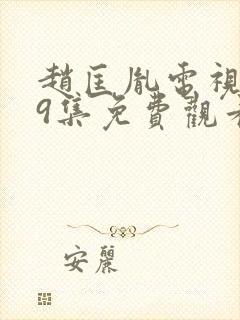 趙匡胤電視
9集免費觀看
安麗